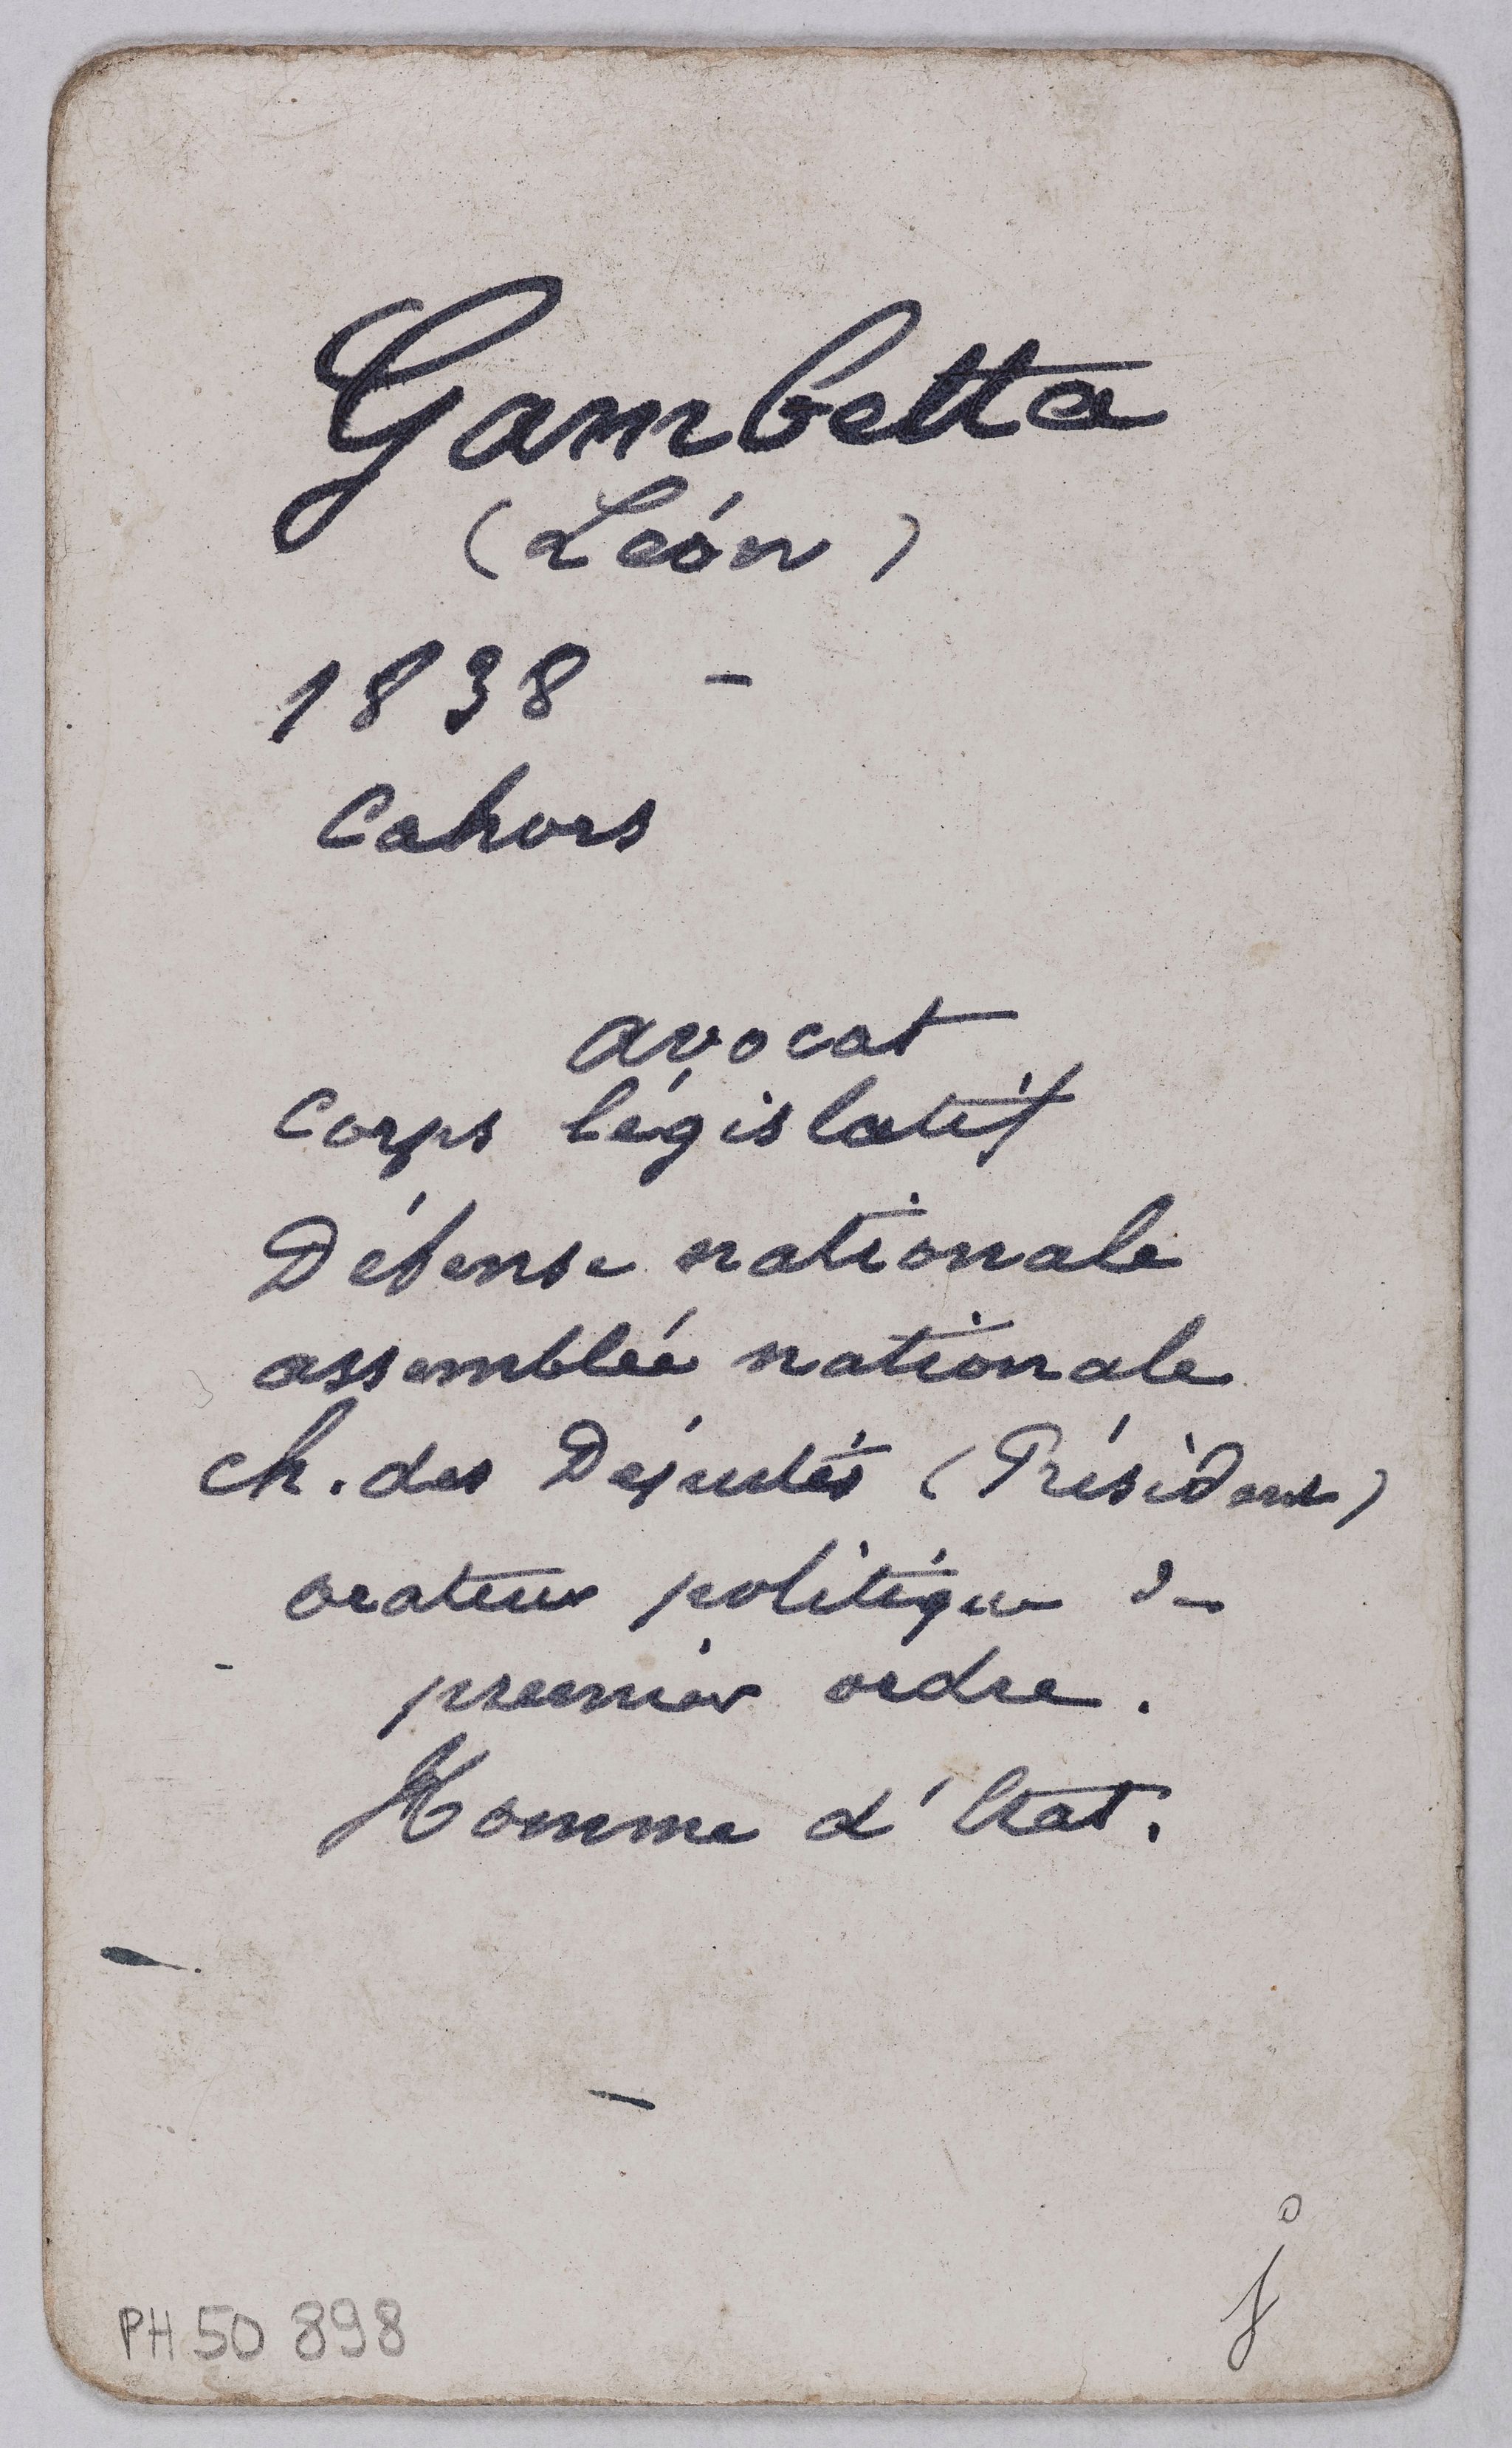 Gambetta
(Léon)
1838 -
Cahors
avocat
Corps législatif
Défense nationale
assemblée nationale
ch. des Députés (Président)
orateur politique de
premier ordre.
Homme d'Etat.
PH 50 898